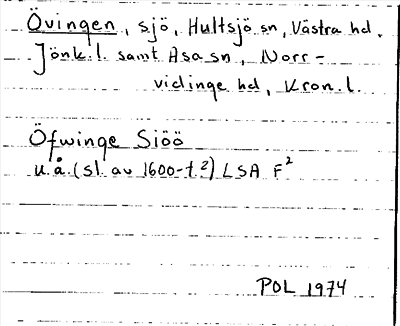 Övingen, sjö, Hultsjö sn, Västra hd,
Jönk. l. samt Asa sn, Norr-
vidinge hd, Kron. l.
Öfwinge Siöö
u.å. (sl. av 1600-t.?) LSA F²
POL 1974